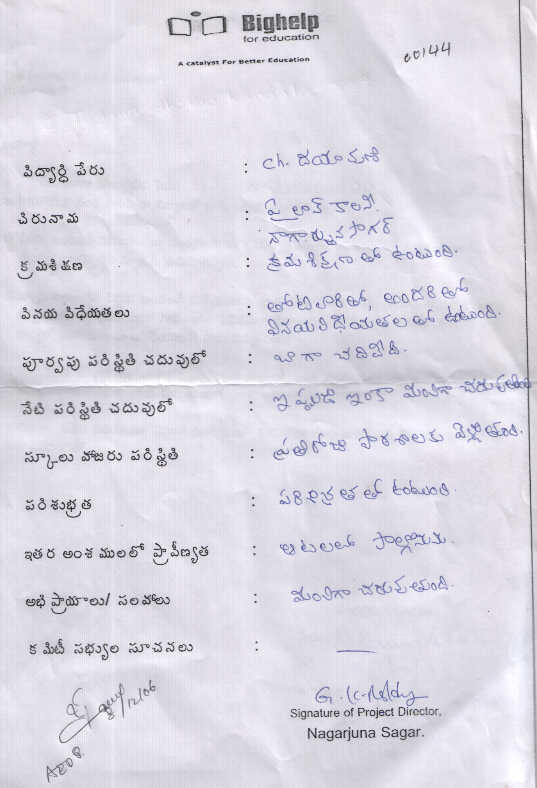 Bighelp
for education
A catalyst For Better Education
00144
విద్యార్థి పేరు : Ch. దయామణి
చిరునామ : పైలాన్ కాలనీ,
నాగార్జున సాగర్
క్రమశిక్షణ : క్రమశిక్షణ తో ఉంటుంది.
వినయ విధేయతలు : తోటివారితో, అందరితో
వినయవిధేయతలతో ఉంటుంది.
పూర్వపు పరిస్థితి చదువులో : బాగా చదివేది.
నేటి పరిస్థితి చదువులో : ఇప్పుడు ఇంకా మంచిగా చదువుతుంది
స్కూలు హాజరు పరిస్థితి : ప్రతిరోజు పాఠశాలకు వెళ్తుంది.
పరిశుభ్రత : పరిశుభ్రతతో ఉంటుంది.
ఇతర అంశములలో ప్రావీణ్యత : ఆటలలో పాల్గొనును.
అభిప్రాయాలు/ సలహాలు : మంచిగా చదువుతుంది.
కమిటీ సభ్యుల సూచనలు :
G. K. Reddy
Signature of Project Director,
Nagarjuna Sagar.